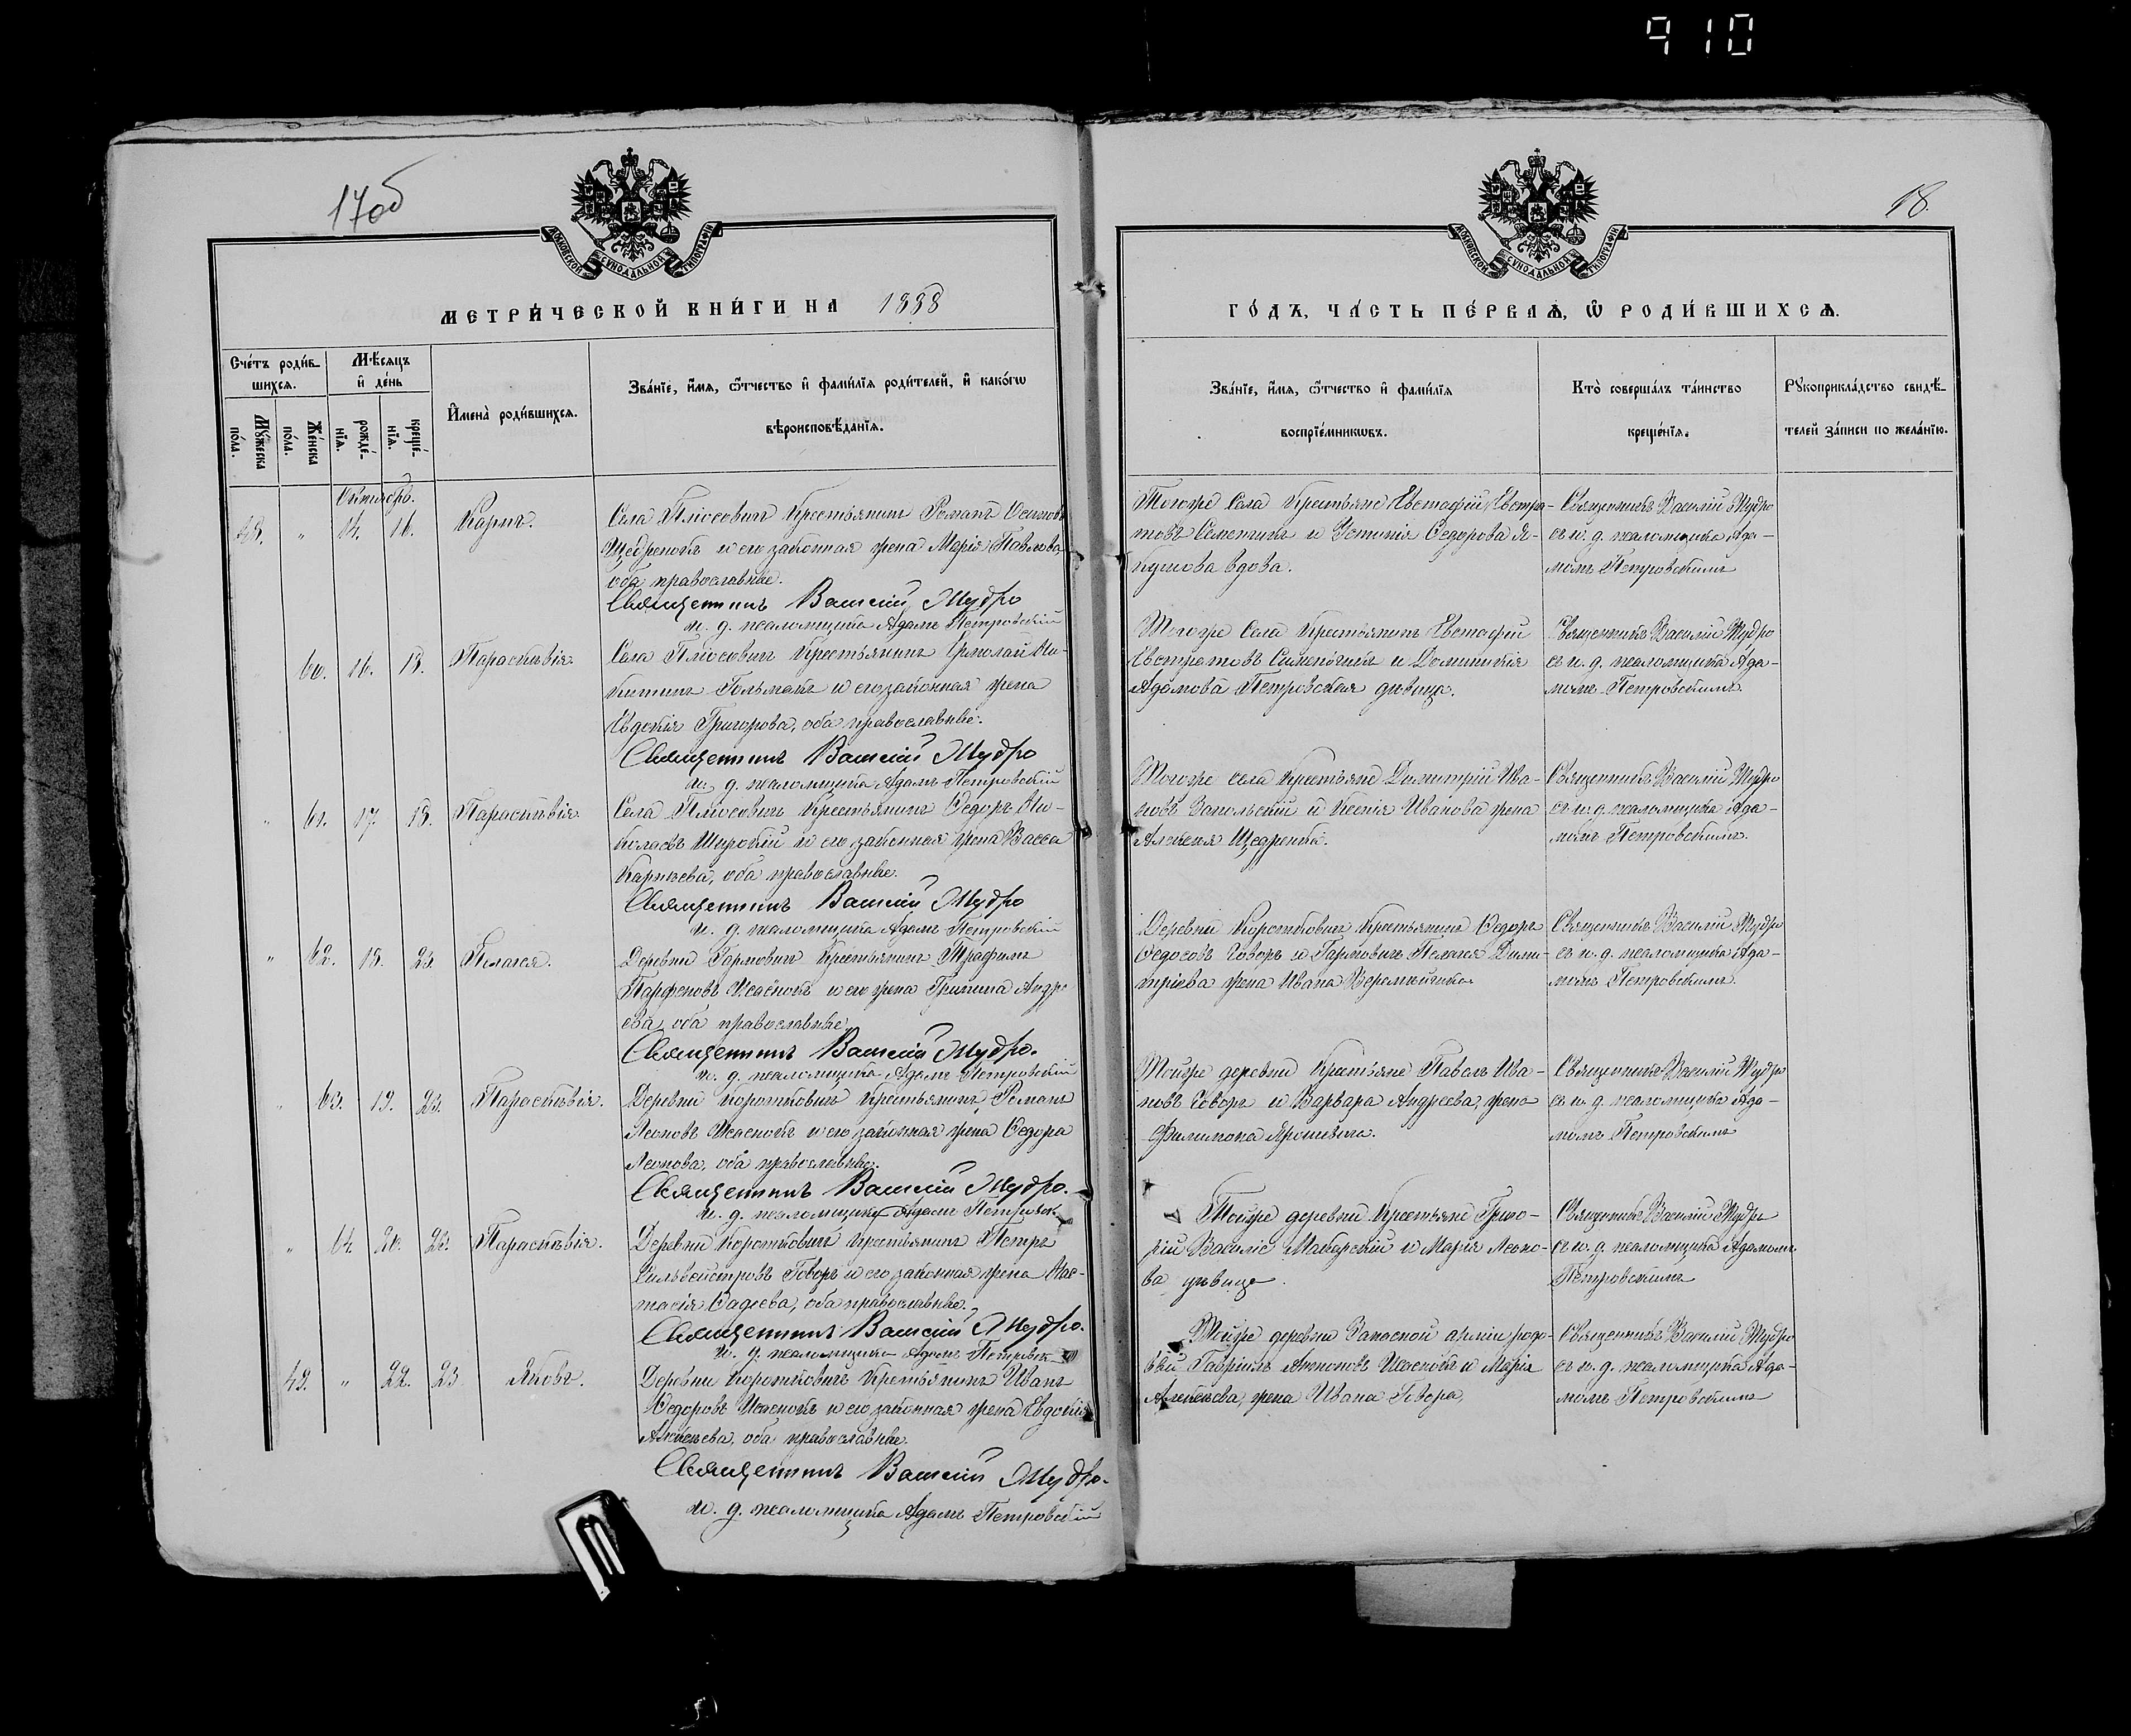 910
17 об
18.
МОСКОВСКОЙ СѴНОДАЛЬНОЙ ТИПОГРАФІИ
МОСКОВСКОЙ СѴНОДАЛЬНОЙ ТИПОГРАФІИ
МЕТРИ́ЧЕСКОЙ КНИ́ГИ НА 1888
ГО́ДЪ, ЧА́СТЬ ПЕ́РВАѦ, Ѡ҆ РОДИ́ВШИХСѦ.
Сче́тъ роди́в-
шихся.
Мѣ́сяцъ
и҆ де́нь
Му́жеска
по́ла.
Же́нска
по́ла.
рожде́-
нїѧ.
креще́-
нїѧ.
И҆мена̀ роди́вшихсѧ.
Зва́нїе, и҆́мѧ, ѻ҆́тчество и҆ фами́лїѧ роди́телей, и҆ како́гѡ
вѣроисповѣ́данїѧ.
Зва́нїе, и҆́мѧ, ѻ҆́тчество и҆ фами́лїѧ
воспрїе́мникѡвъ.
Кто̀ соверша́лъ та́инство
креще́нїѧ.
Рꙋкоприкла́дство свидѣ́-
телей за́писи по жела́нїю.
Октябрь.
48. „ 14. 16. Карпъ.
Села Плюсовичъ Крестьянинъ Романъ Осиповъ
Щедренокъ и его законная жена Марія Павлова
оба православные.
Священникъ Василій Мудро
и. д. псаломщика Адамъ Петровскій
Тогоже Села Крестьяне Евстафій Евстра-
товъ Семенчикъ и Устинія Ѳедорова Я-
кушова вдова.
Священникъ Василій Мудро
съ и. д. псаломщика Ада-
момъ Петровскимъ
60. 16. 18. Параскевія.
Села Плюсовичъ Крестьянинъ Ермолай Ни-
китинъ Гольманъ и его законная жена
Евдокія Григорова, оба православные.
Священникъ Василій Мудро
и. д. псаломщика Адамъ Петровскій
Тогоже Села Крестьянинъ Евстафій
Евстратовъ Сименчикъ и Доминикія
Адамова Петровская дѣвица.
Священникъ Василій Мудро
съ и. д. псаломщика Ада-
момъ Петровскимъ.
„ 61. 17. 18. Параскевія.
Села Плюсовичъ Крестьянинъ Ѳедоръ Ни-
колаевъ Широкій и его законная жена Васса
Карпѣева, оба православные.
Священникъ Василій Мудро
и. д. псаломщика Адамъ Петровскій
Тогоже села Крестьяне Димитрій Ива-
новъ Запольскій и Ксенія Иванова жена
Алексея Щедренка.
Священникъ Василій Мудро
съ и. д. псаломщика Ада-
момъ Петровскимъ.
„ 62. 18. 23. Пелагея.
Деревни Гармовичъ Крестьянинъ Трафимъ
Парфеновъ и его жена Гринина Андре
ева, оба православные.
Священникъ Василій Мудро.
и. д. псаломщика Адамъ Петровскій
Деревни Коротковичъ Крестьянинъ Ѳедоръ
Ѳедосовъ Говоръ и Гармовичъ Пелагея Дими-
тріева жена Ивана
Священникъ Василій Мудро
съ и. д. псаломщика Ада-
момъ Петровскимъ.
„ 63. 19. 23. Параскевія.
Деревни Коротковичъ Крестьянинъ Романъ
Леоновъ и его законная жена Ѳедора
Леонова, оба православные.
Священникъ Василій Мудро.
и. д. псаломщика Адамъ Петровск
Тойже деревни Крестьяне Павелъ Ива-
новъ Говоръ и Варвара Андреева, жена
Филимона Ярошевича.
Священникъ Василій Мудро
съ и. д. псаломщика Ада-
момъ Петровскимъ
„ 64. 20. 23. Параскевія.
Деревни Коротковичъ Крестьянинъ Петръ
Сильвестровъ Говоръ и его законная жена Нас-
тасія Фадеева, оба православные.
Священникъ Василій Мудро.
и. д. псаломщика Адамъ Петровск
Тойже деревни Крестьяне Григо-
рій Василіе Макарскій и Марія Леоно-
ва дѣвица.
Священникъ Василій Мудро
съ и. д. псаломщика Адамомъ
Петровскимъ
49. „ 22. 23 Яковъ.
Деревни Коротковичъ Крестьянинъ Иванъ
Ѳедоровъ и его законная жена Евдокія
Алексѣева, оба православные.
Священникъ Василій Мудро.
и. д. псаломщика Адамъ Петровскій
Тойже деревни Запасной арміи рядо-
вый Гавріилъ Антоновъ и Марія
Алексѣева, жена Ивана Говора,
Священникъ Василій Мудро
съ и. д. псаломщика Ада-
момъ Петровскимъ